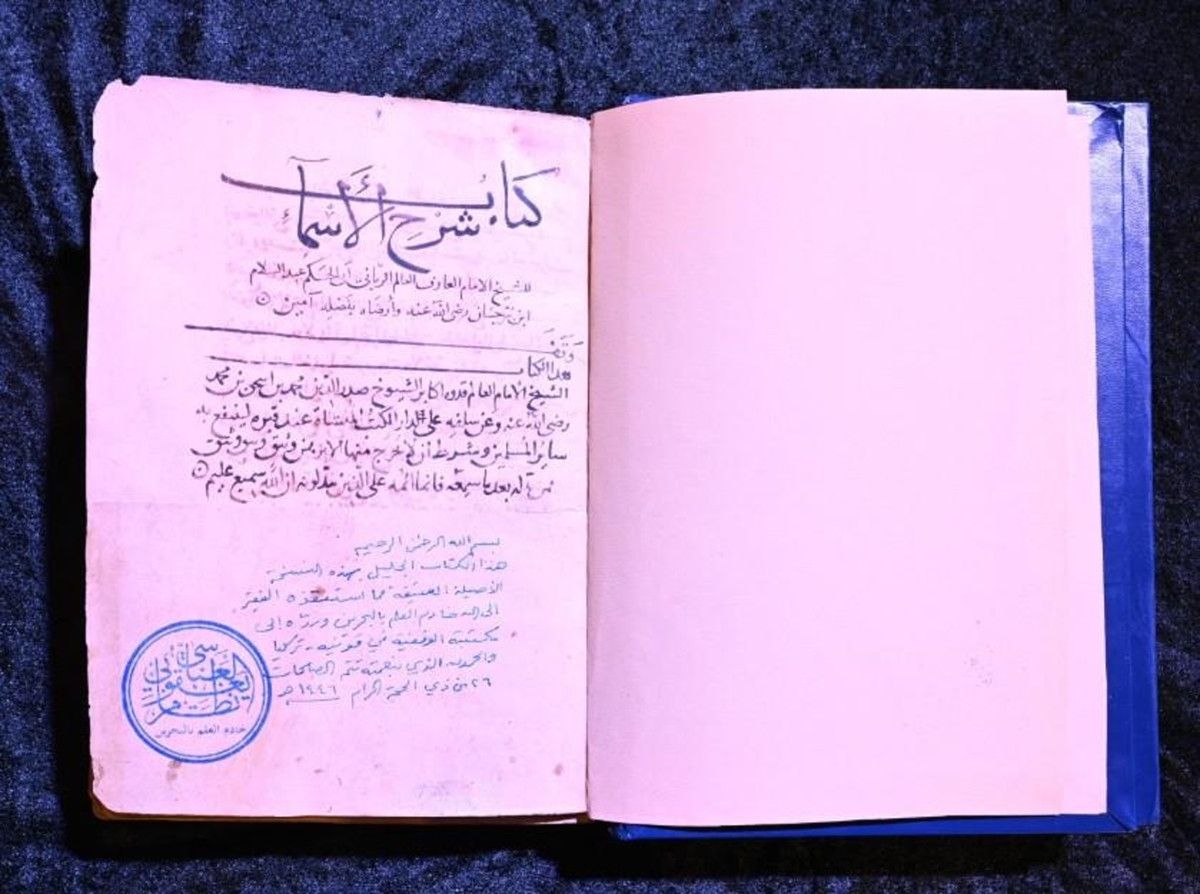 كتاب
شرح الأسمآء
للشيخ الامام العارف العالم الرباني أبي الحكم عبد السلام
ابن برجان رضى الله عنه وأرضاه بفضله آمين
وقف
هذا الكتاب
الشيخ الامام العالم قدوة اكابر الشيوخ صدر الدين محمد بن اسحق بن محمد
رضى الله عنه وعن سلفه على دار الكتب المنشاة عند قبره لينتفع به
ساير المسلمين وشرط ان لا يخرج منها الا برهن وثيق
فمن بدله بعدما سمعه فانما اثمه على الذين يبدلونه ان الله سميع عليم
بسم الله الرحمن الرحيم
هذا الكتاب الجليل بهذه النسخة
الأصيلة العتيقة مما استنقذه الفقير
إلى الله خادم العلم بالبحرين ورده إلى
مكتبته الوقفية في قونيه - تركيا
والحمد لله الذي بنعمته تتم الصالحات
٢٦ من ذي الحجة الحرام ١٤٤٦ هـ
نظام يعقوبي العباسي
خادم العلم بالبحرين